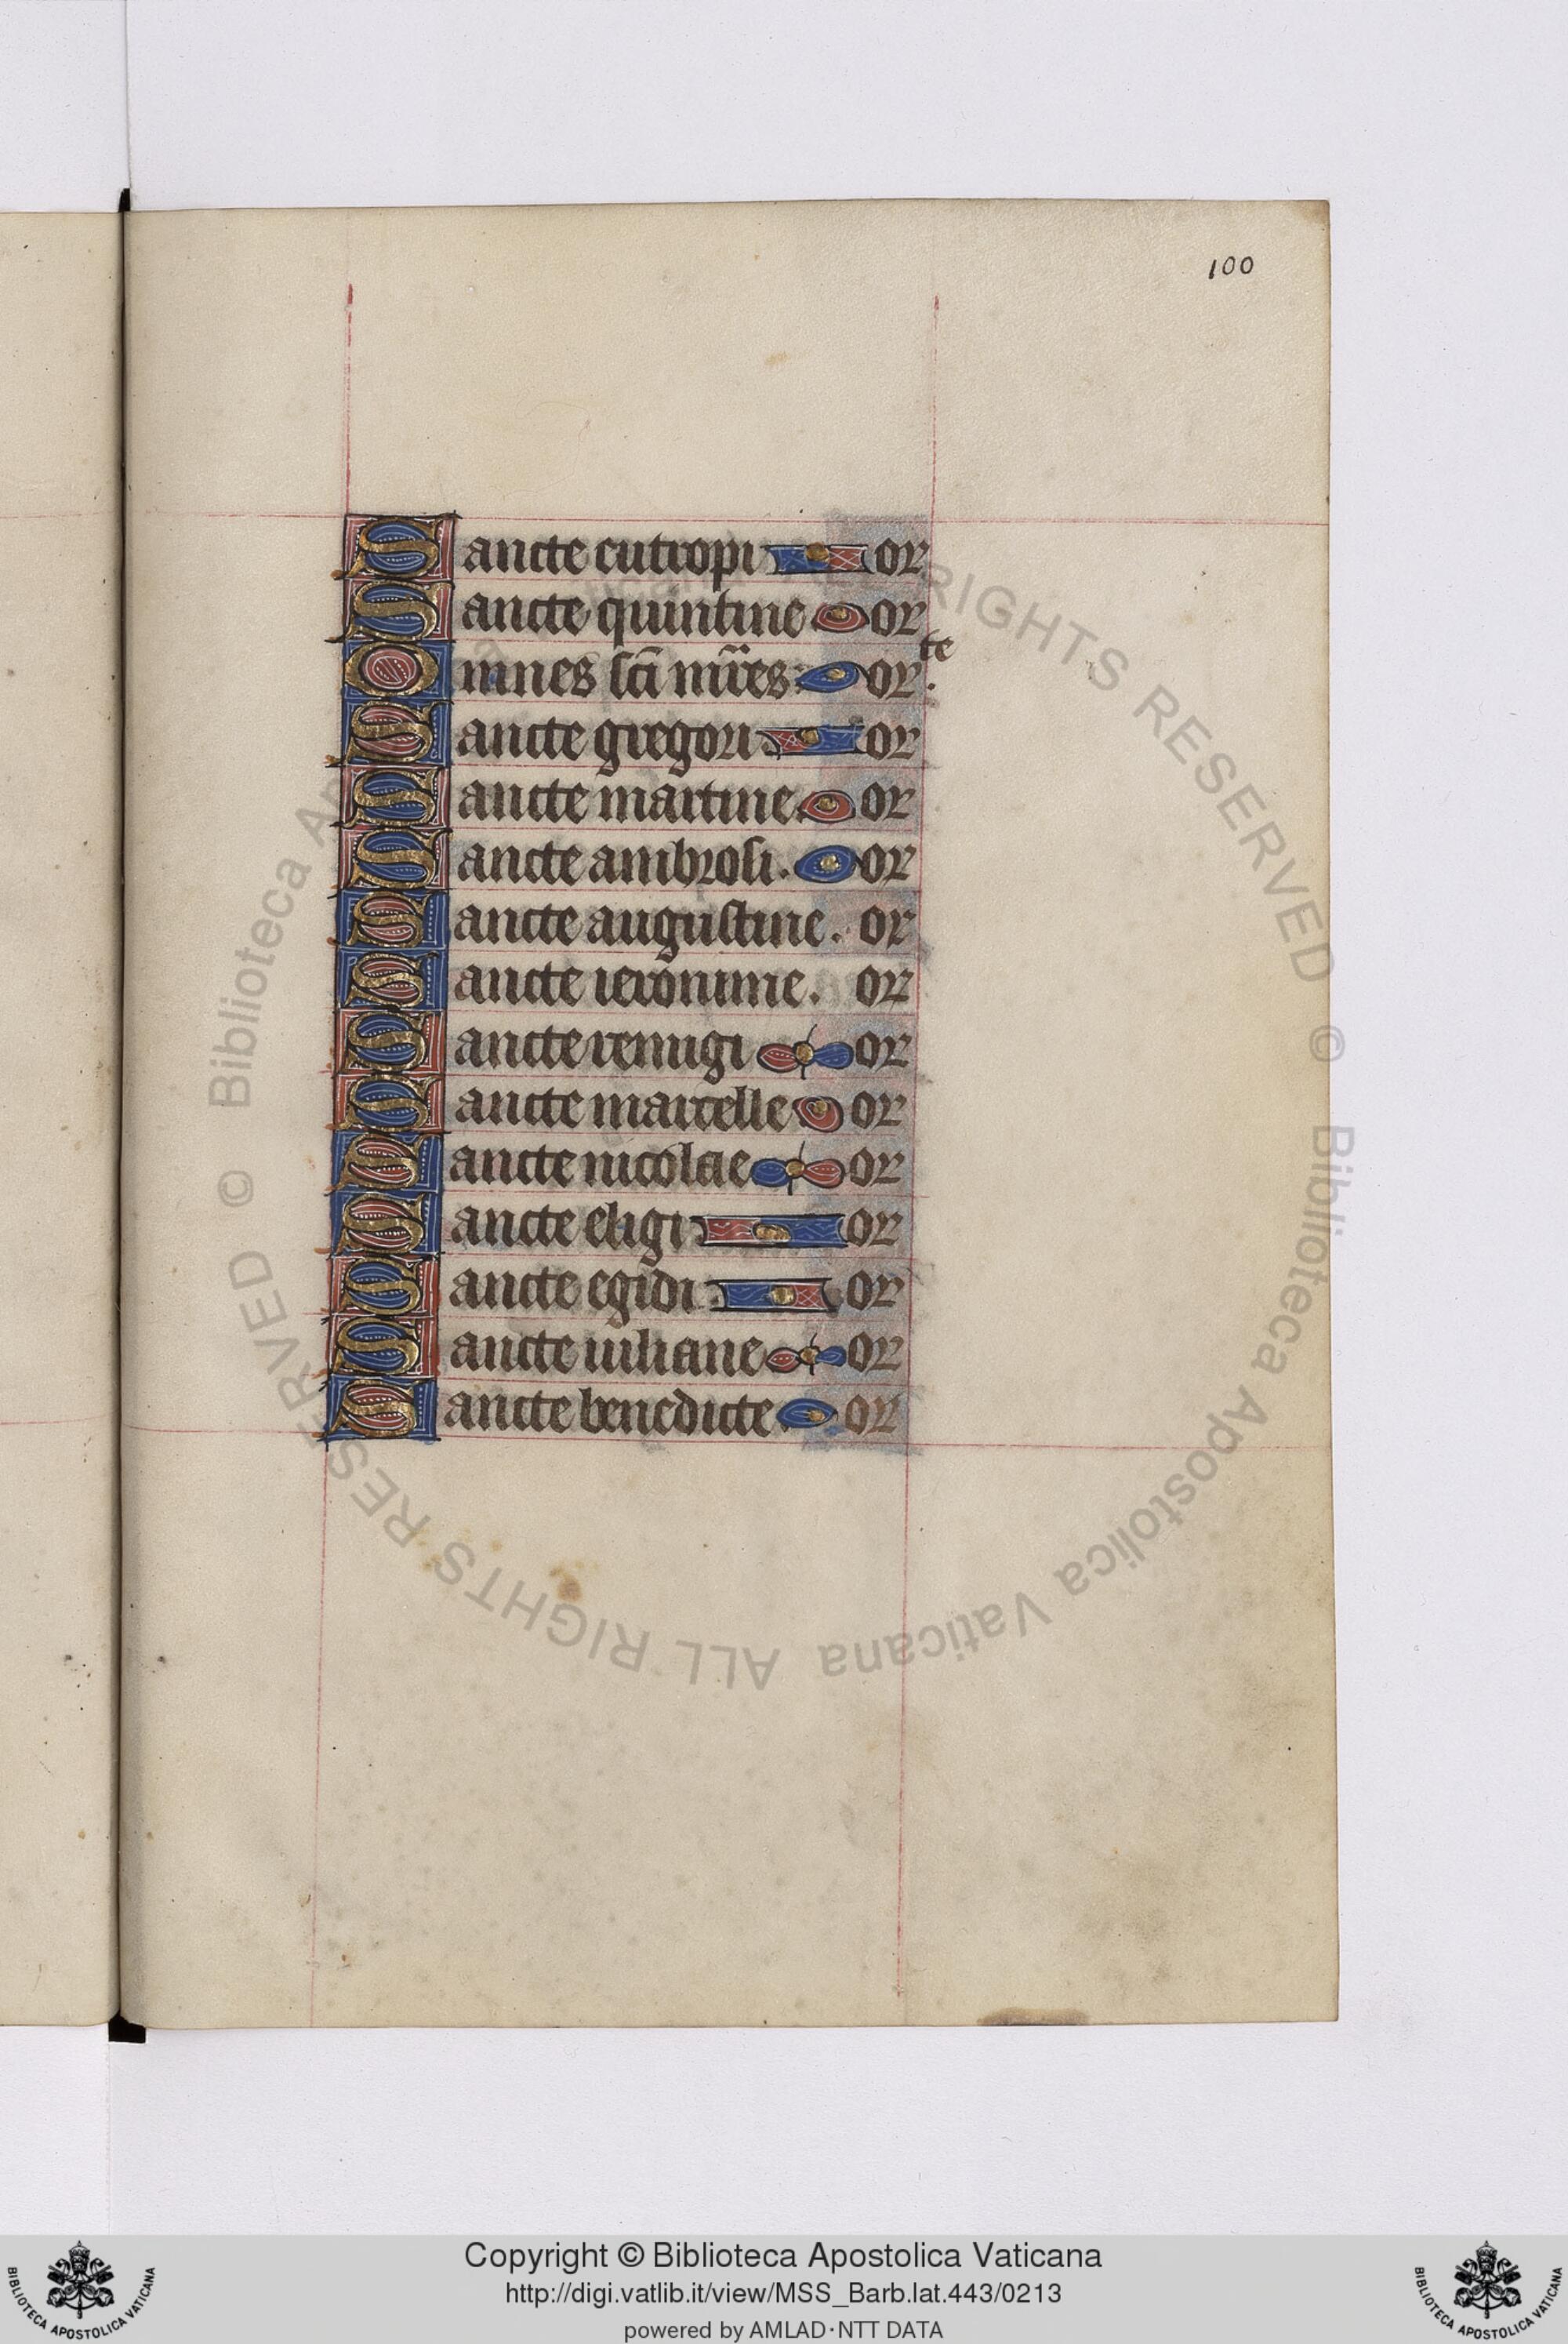 100
Sancte eutropi or
Sancte quintine or
Omnes sci mr̃es or te.
Sancte gregori or
Sancte martine. or
Sancte ambrosi. or
Sancte augustine. or
Sancte ieronime. or
Sancte remigi or
Sancte marcelle or
Sancte nicolae or
Sancte eligi or
Sancte egidi. or
Sancte iuliane or
Sancte benedicte or
© Biblioteca Apostolica Vaticana ALL RIGHTS RESERVED
Copyright © Biblioteca Apostolica Vaticana
http://digi.vatlib.it/view/MSS_Barb.lat.443/0213
powered by AMLAD·NTT DATA
BIBLIOTECA APOSTOLICA VATICANA
BIBLIOTECA APOSTOLICA VATICANA